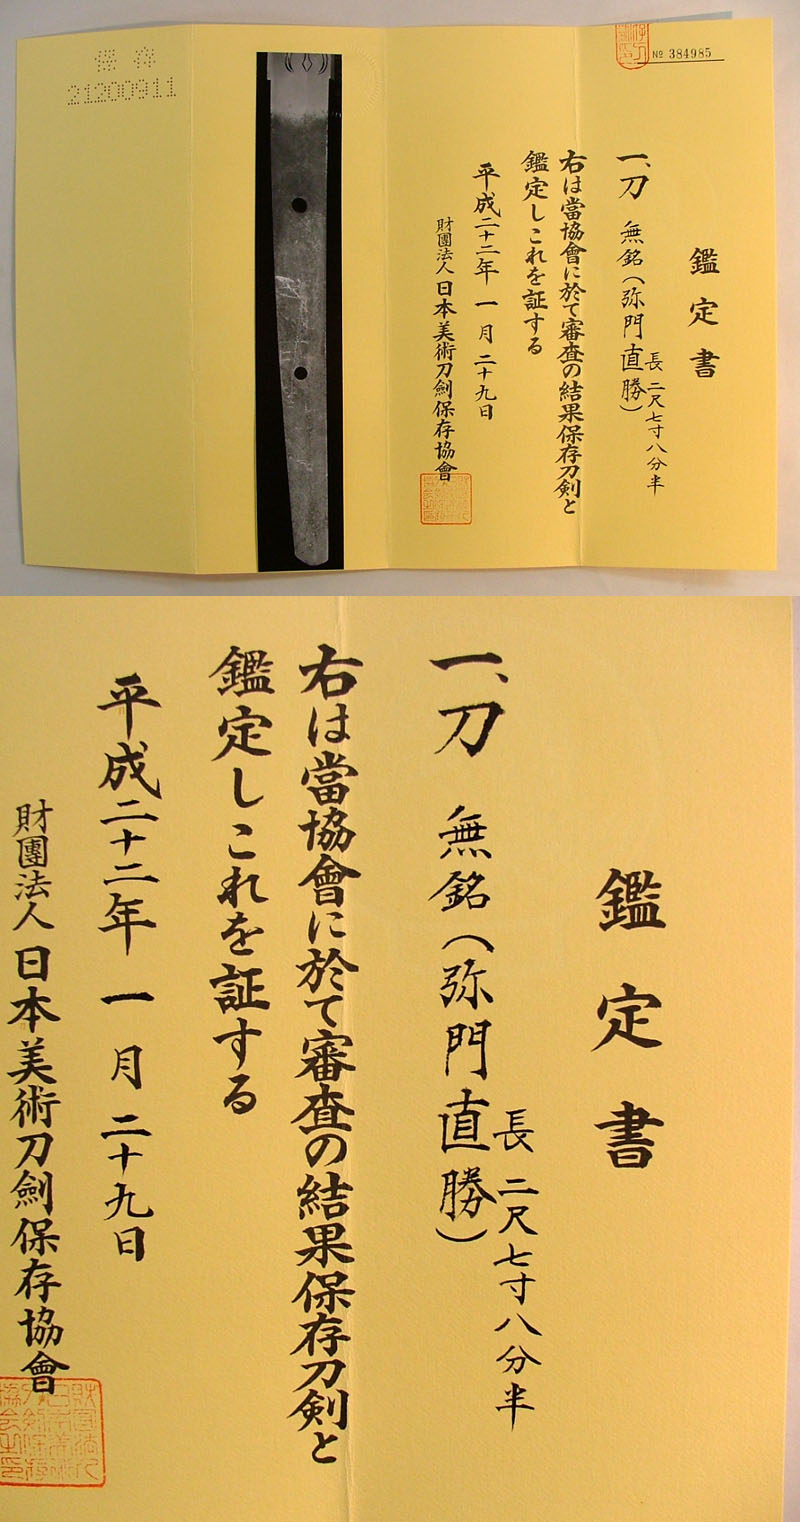 保存
21200911
№ 384985
鑑定書
一、刀 無銘(弥門直勝)
長 二尺七寸八分半
右は當協會に於て審査の結果保存刀剣と
鑑定しこれを証する
平成二十二年 一月 二十九日
財團法人 日本美術刀劍保存協會
鑑定書
長 二尺七寸八分半
一、刀 無銘(弥門直勝)
右は當協會に於て審査の結果保存刀剣と
鑑定しこれを証する
平成二十二年 一月 二十九日
財團法人 日本美術刀劍保存協會